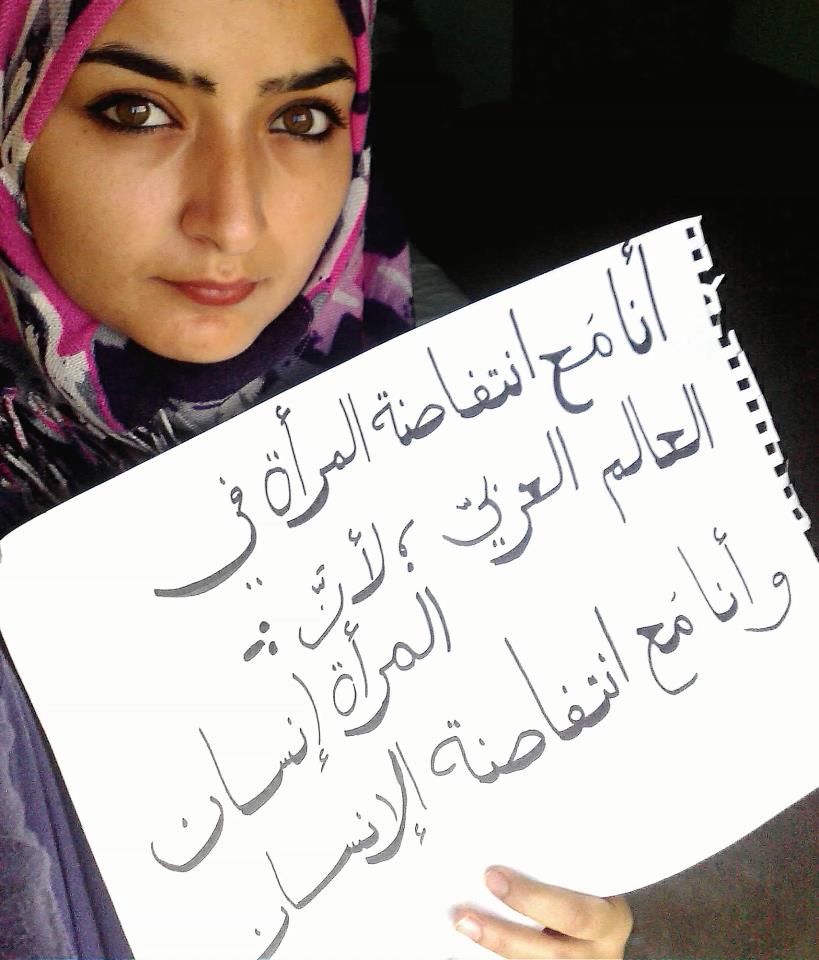 أنا مَع انتفاضة المرأة في
العالم العربيّ ؛ لأنَّ :
المرأة إنسان
و أنا مَع انتفاضة الإنسان